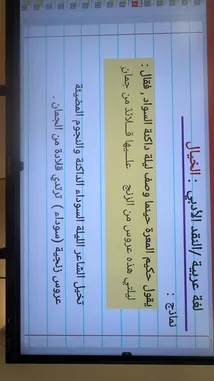 لغة عربية /النقد الأدبي : الخيال
نماذج :
يقول حكيم المعرة حينما وصف ليلة داكنة السواد , فقال :
ليلتي هذه عروس من الزنج عليها قلائد من جمان
تخيل الشاعر الليلة السوداء الداكنة والنجوم المضيئة
عروس زنجية (سوداء ) ترتدي قلادة من الجمان .